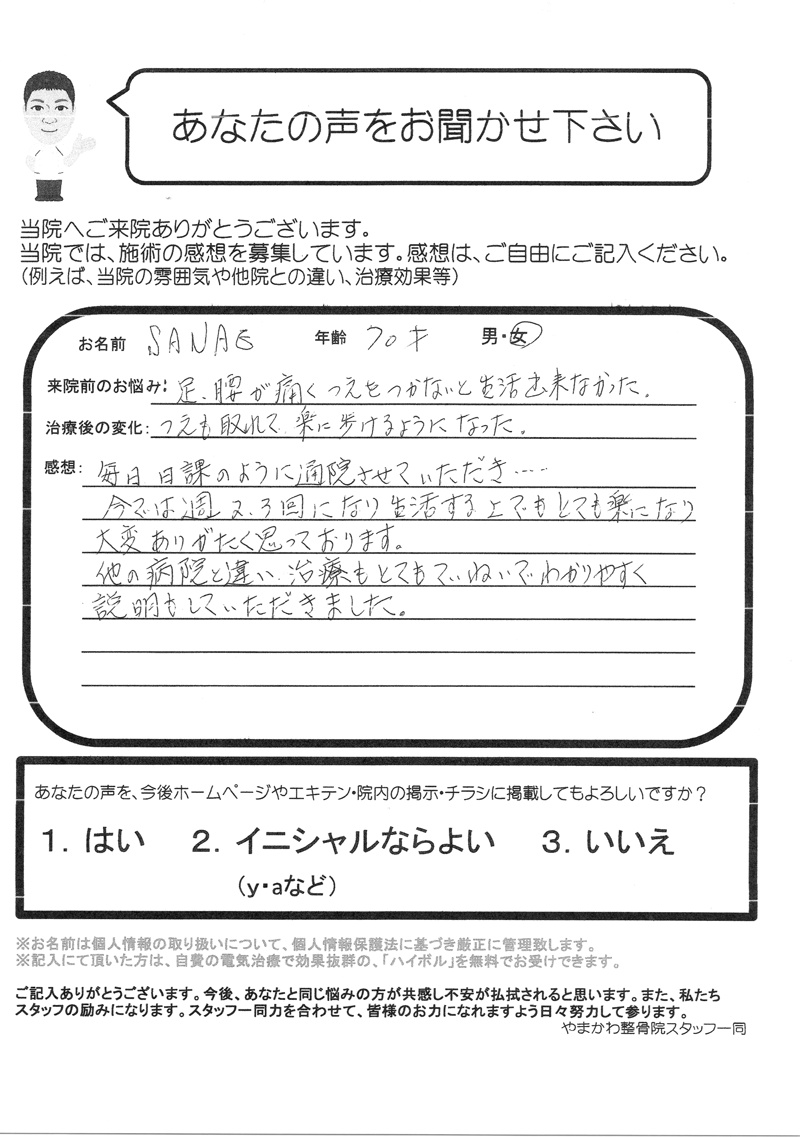 あなたの声をお聞かせ下さい
当院へご来院ありがとうございます。
当院では、施術の感想を募集しています。感想は、ご自由にご記入ください。
(例えば、当院の雰囲気や他院との違い、治療効果等)
お名前 SANAE 年齢 70才 男・女
来院前のお悩み: 足、腰が痛くつえをつかないと生活出来なかった。
治療後の変化: つえも取れて、楽に歩けるようになった。
感想: 毎日日課のように通院させていただき....
今では週2、3回になり生活する上でもとても楽になり
大変ありがたく思っております。
他の病院と違い、治療もとてもていねいでわかりやすく
説明もしていただきました。
あなたの声を、今後ホームページやエキテン・院内の掲示・チラシに掲載してもよろしいですか?
1. はい 2. イニシャルならよい 3. いいえ
(y・aなど)
※お名前は個人情報の取り扱いについて、個人情報保護法に基づき厳正に管理致します。
※記入にて頂いた方は、自費の電気治療で効果抜群の、「ハイボル」を無料でお受けできます。
ご記入ありがとうございます。今後、あなたと同じ悩みの方が共感し不安が払拭されると思います。また、私たち
スタッフの励みになります。スタッフ一同力を合わせて、皆様のお力になれますよう日々努力して参ります。
やまかわ整骨院スタッフ一同